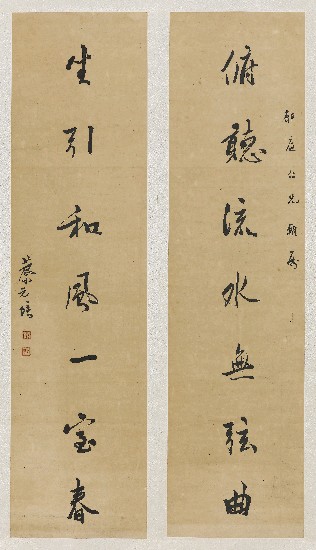 俯聽流水無弦曲
仁兄雅屬
坐引和風一室春
蔡元培